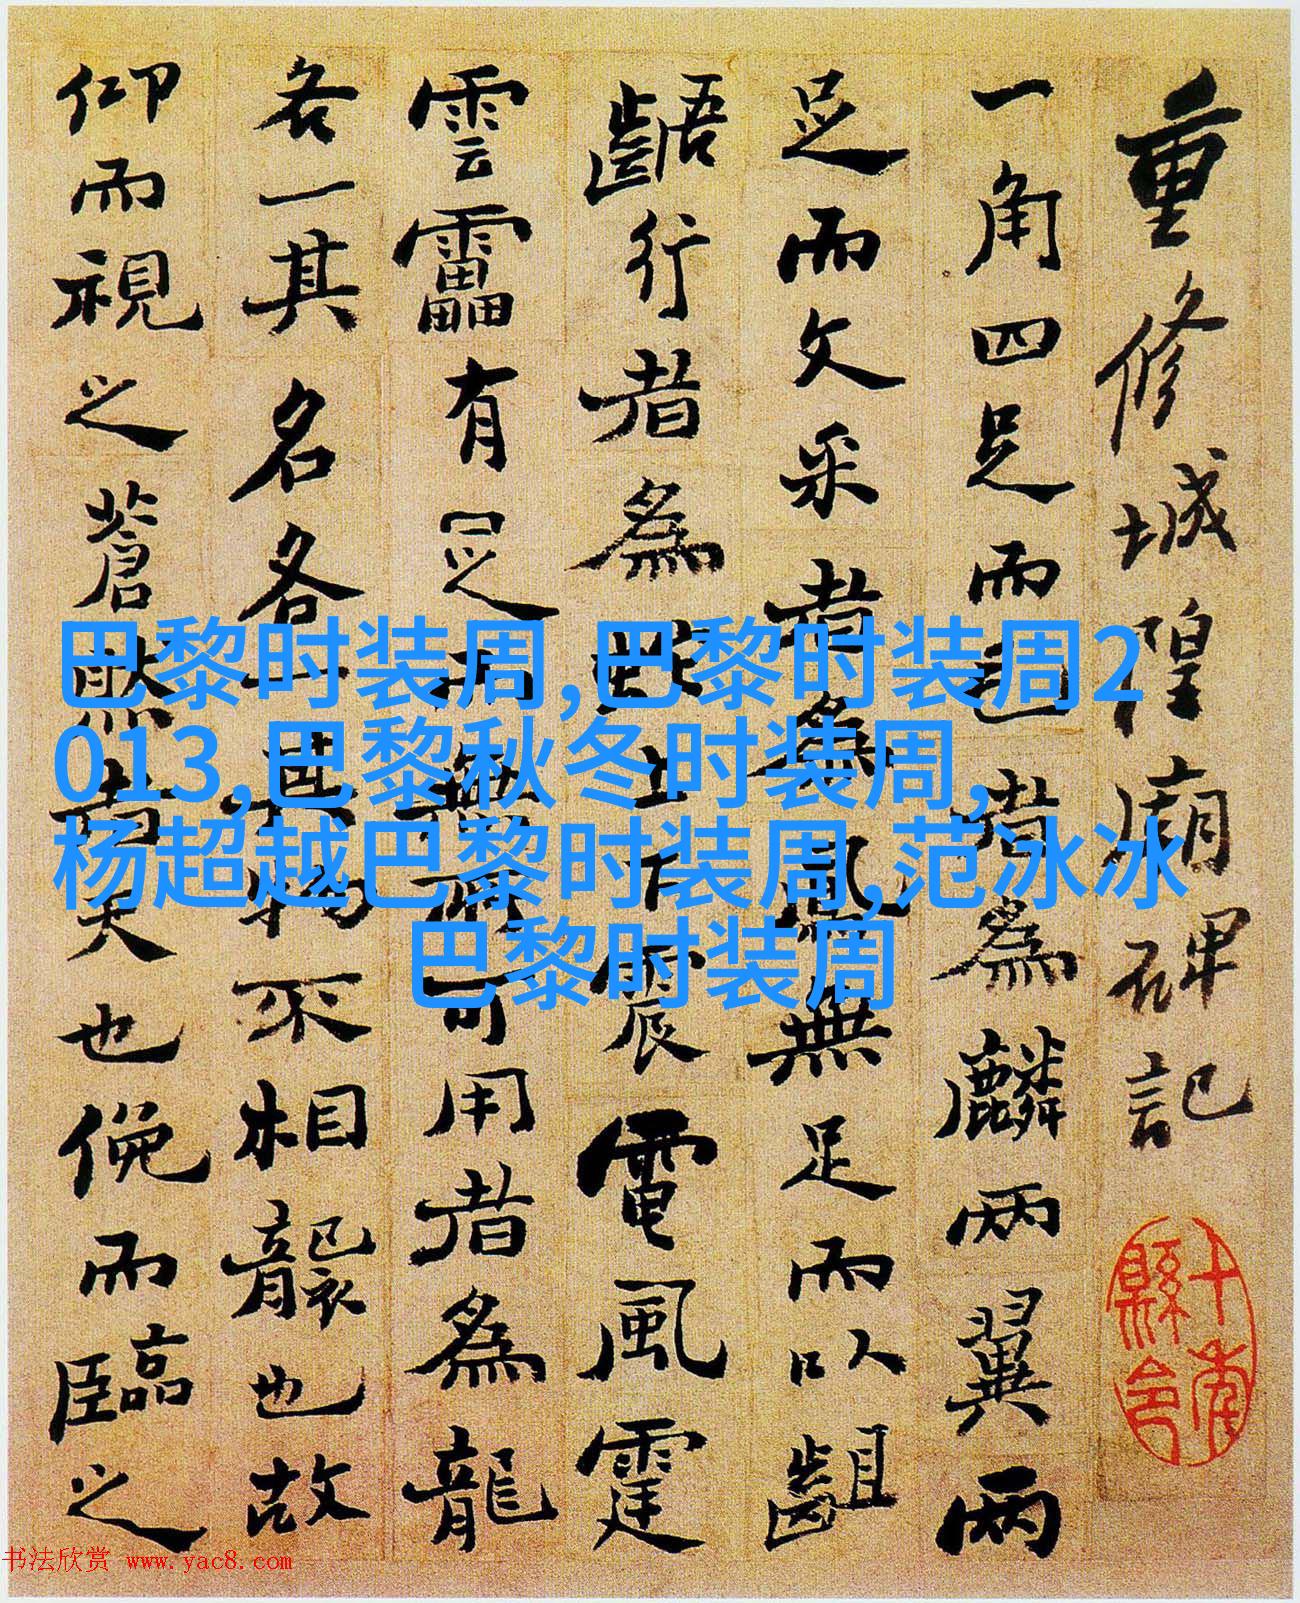 重修城隍廟碑記
縣令
一角四足而毛者為麟兩翼兩
足而文采者為鳳無足而以齟
齬行者為蛇上下震電風霆
雲靁有足而無可用者為龍
各一其名各一其物不相襲也故
仰而視之蒼然者天也俛而臨之
巴黎时装周,巴黎时装周2
013,巴黎秋冬时装周,
杨超越巴黎时装周,范冰冰
巴黎时装周
书法欣赏 www.yac8.com